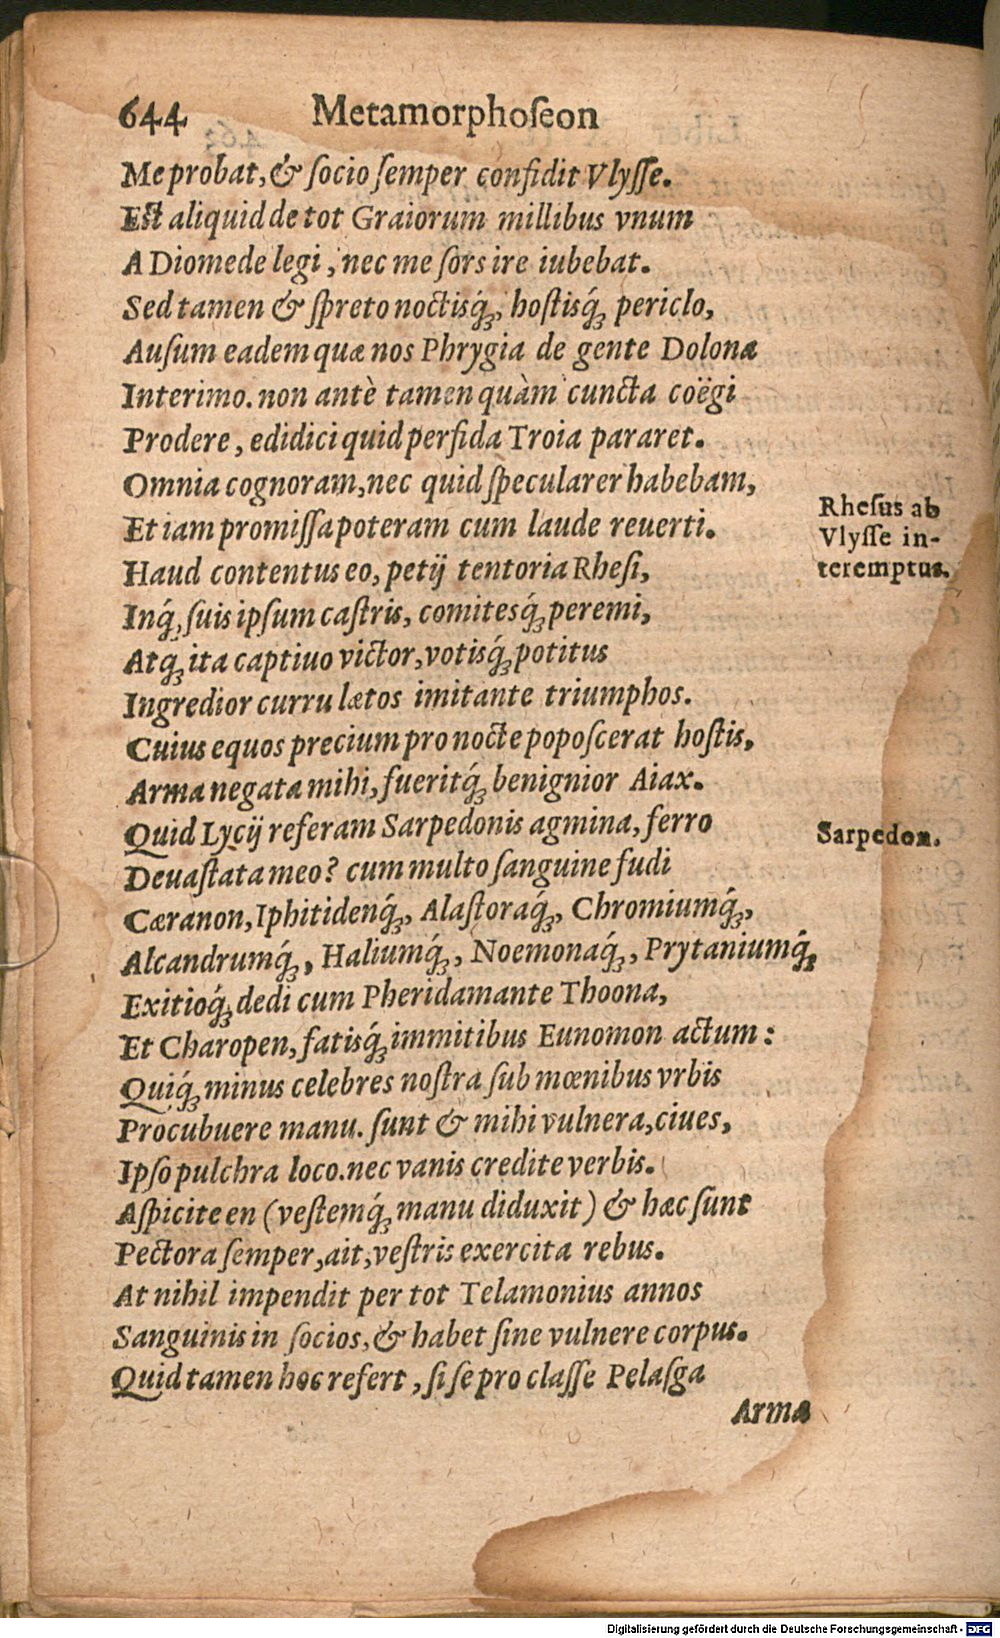 644 Metamorphoſeon
Me probat, & ſocio ſemper confidit Vlyſſe.
Eſt aliquid de tot Graiorum millibus vnum
A Diomede legi, nec me ſors ire iubebat.
Sed tamen & ſpreto noctisq́ꝫ, hoſtisq́ꝫ periclo,
Auſum eadem quæ nos Phrygia de gente Dolona
Interimo. non antè tamen quàm cuncta coëgi
Prodere, edidici quid perfida Troia pararet.
Omnia cognoram, nec quid ſpecularer habebam,
Et iam promiſſa poteram cum laude reuerti.
Haud contentus eo, petij tentoria Rheſi,
Inq́ꝫ ſuis ipſum caſtris, comitesq́ꝫ peremi,
Atqꝫ ita captiuo victor, votisq́ꝫ potitus
Ingredior curru lætos imitante triumphos.
Cuius equos precium pro nocte popoſcerat hoſtis,
Arma negata mihi, fueritq́ꝫ benignior Aiax.
Quid Lycij referam Sarpedonis agmina, ferro
Deuaſtata meo? cum multo ſanguine fudi
Cæranon, Iphitidenq́ꝫ, Alaſtoraq́ꝫ, Chromiumq́ꝫ,
Alcandrumq́ꝫ, Haliumq́ꝫ, Noemonaq́ꝫ, Prytaniumq́ꝫ,
Exitioq́ꝫ dedi cum Pheridamante Thoona,
Et Charopen, fatisq́ꝫ immitibus Eunomon actum:
Quiq́ꝫ minus celebres noſtra ſub mœnibus vrbis
Procubuere manu. ſunt & mihi vulnera, ciues,
Ipſo pulchra loco. nec vanis credite verbis.
Aſpicite en (veſtemq́ꝫ manu diduxit) & hæc ſunt
Pectora ſemper, ait, veſtris exercita rebus.
At nihil impendit per tot Telamonius annos
Sanguinis in ſocios, & habet ſine vulnere corpus.
Quid tamen hoc refert, ſi ſe pro claſſe Pelaſga
Arma
Rheſus ab
Vlyſſe in-
teremptus.
Sarpedon.
Digitalisierung gefördert durch die Deutsche Forschungsgemeinschaft - DFG